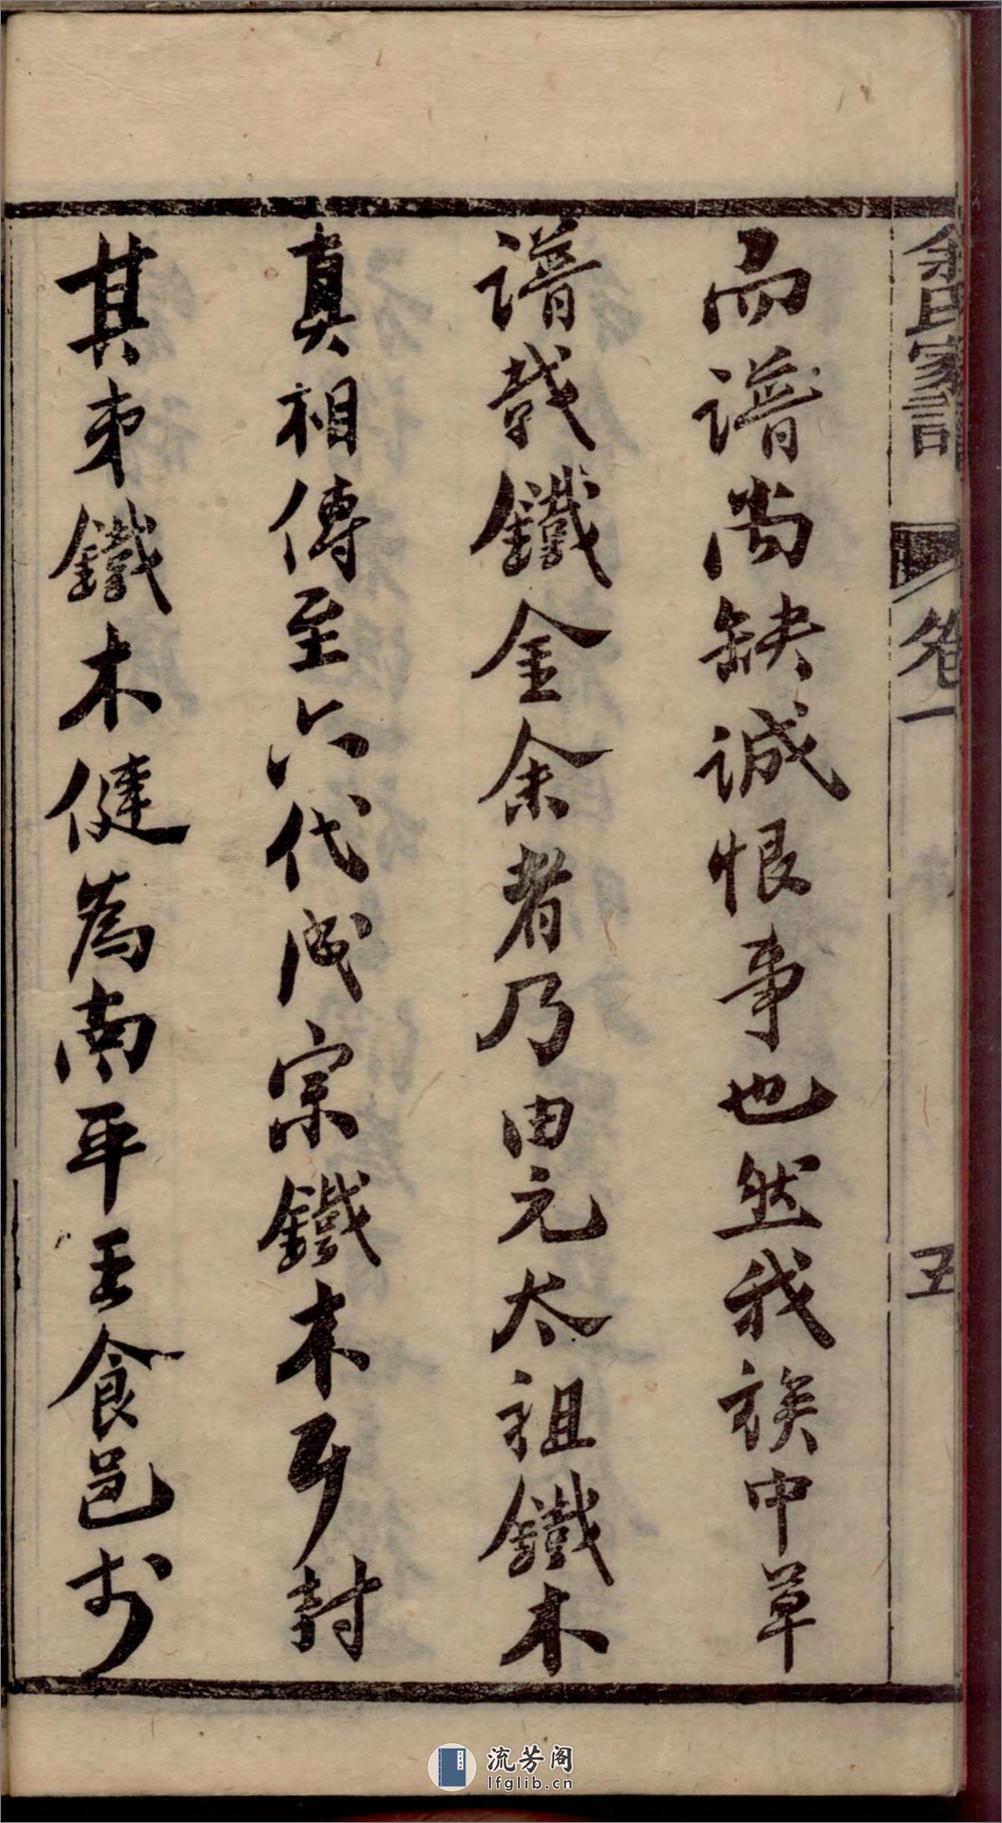 余氏家譜
卷一
五
而譜尚缺誠恨事也然我族中草
譜哉鐵金余者乃由元太祖鐵木
真相傳至六代成宗鐵木耳封
其弟鐵木健為南平王食邑於
流芳阁
lfglib.cn